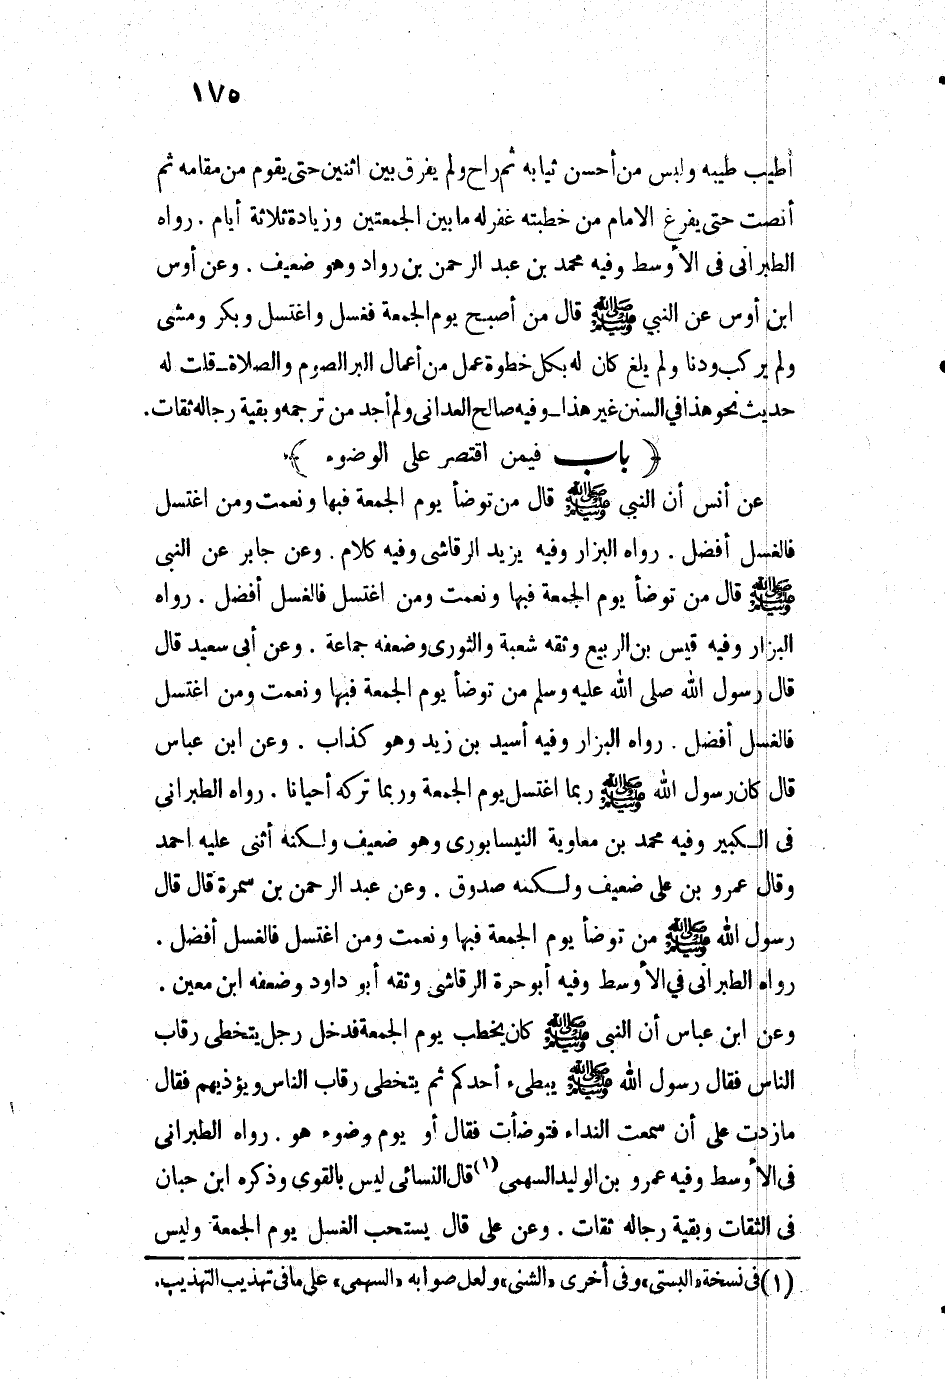 ١٧٥
أطيب طيبه ولبس من أحسن ثيابه ثم راح ولم يفرق بين اثنين حتى يقوم من مقامه ثم
أنصت حتى يفرغ الامام من خطبته غفر له ما بين الجمعتين وزيادة ثلاثة أيام . رواه
الطبراني في الأوسط وفيه محمد بن عبد الرحمن بن رواد وهو ضعيف . وعن أوس
ابن أوس عن النبي ﷺ قال من أصبح يوم الجمعة فغسل واغتسل وبكر ومشى
ولم يركب ودنا ولم يلغ كان له بكل خطوة عمل من أعمال البر الصوم والصلاة ـ قلت له
حديث نحو هذا في السنن غير هذا ـ وفيه صالح العداني ولم أجد من ترجمه وبقية رجاله ثقات .
﴿ باب فيمن اقتصر على الوضوء ﴾
عن أنس أن النبي ﷺ قال من توضأ يوم الجمعة فبها ونعمت ومن اغتسل
فالغسل أفضل . رواه البزار وفيه يزيد الرقاشى وفيه كلام . وعن جابر عن النبي
ﷺ قال من توضأ يوم الجمعة فبها ونعمت ومن اغتسل فالغسل أفضل . رواه
البزار وفيه قيس بن الربيع وثقه شعبة والثورى وضعفه جماعة . وعن أبى سعيد قال
قال رسول الله صلى الله عليه وسلم من توضأ يوم الجمعة فبها ونعمت ومن اغتسل
فالغسل أفضل . رواه البزار وفيه أسيد بن زيد وهو كذاب . وعن ابن عباس
قال كان رسول الله ﷺ ربما اغتسل يوم الجمعة وربما تركه أحيانا . رواه الطبراني
فى الكبير وفيه محمد بن معاوية النيسابورى وهو ضعيف ولكنه أثنى عليه احمد
وقال عمرو بن على ضعيف ولكنه صدوق . وعن عبد الرحمن بن سمرة قال قال
رسول الله ﷺ من توضأ يوم الجمعة فبها ونعمت ومن اغتسل فالغسل أفضل .
رواه الطبرانى في الأوسط وفيه أبو حرة الرقاشى وثقه أبو داود وضعفه ابن معين .
وعن ابن عباس أن النبى ﷺ كان يخطب يوم الجمعة فدخل رجل يتخطى رقاب
الناس فقال رسول الله ﷺ يبطىء أحدكم ثم يتخطى رقاب الناس ويؤذيهم فقال
مازدت على أن سمعت النداء فتوضأت فقال أو يوم وضوء هو . رواه الطبرانى
فى الأوسط وفيه عمرو بن الوليد السهمى (١) قال النسائى ليس بالقوى وذكره ابن حبان
فى الثقات وبقية رجاله ثقات . وعن على قال يستحب الغسل يوم الجمعة وليس
(١) فى نسخة «البستى» وفى أخرى «الشنى» ولعل صوابه «السهمى» على ما فى تهذيب التهذيب .